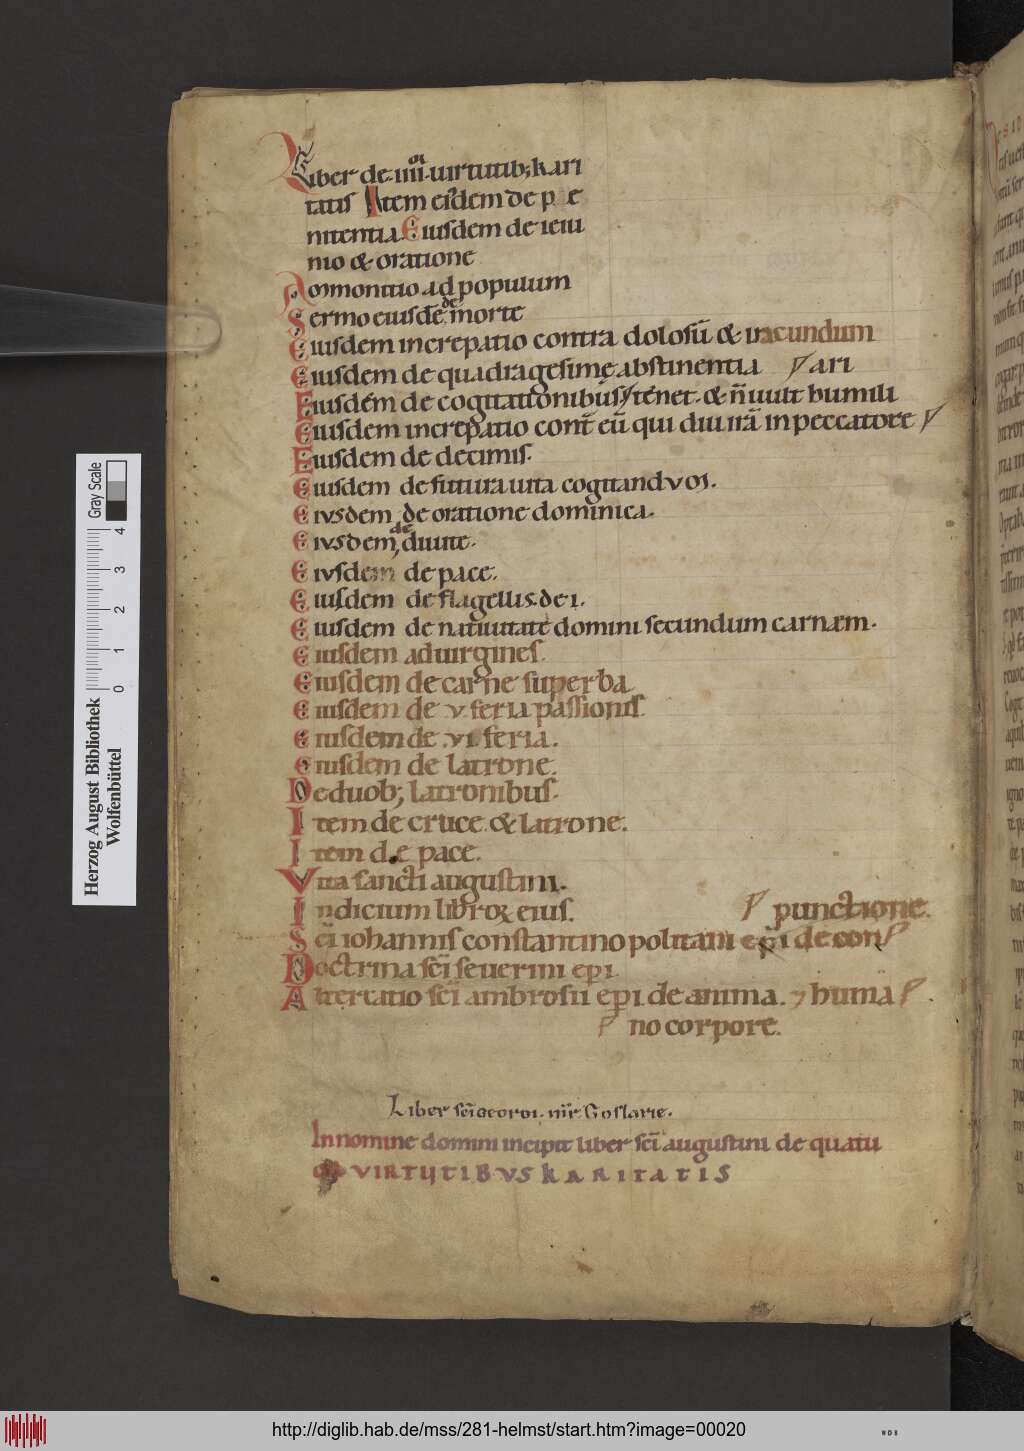 Liber de·iiii·or uirtutib; kari
tatis Item eisdem de p e
nitentia Eiusdem de ieiu
nio & oratione
Ammonitio ad populum
Sermo eiusdē de morte
Eiusdem increpatio contra dolosū & iracundum
Eiusdem de quadragesime abstinentia ari
Eiusdem de cogitationibus tenet· & ñ uult humili
Eiusdem increpatio cont̄ eū qui diu irā in peccatore
Eiusdem de decimis·
Eiusdem de futura uita cogitanduos.
Eiusdem de oratione dominica.
Eiusdem, de diuite·
Eiusdem de pace.
Eiusdem de flagellis·dei.
Eiusdem de natiuitate domini secundum carnæm·
Eiusdem ad uirgines.
Eiusdem de carne superba
Eiusdem de v feria passionis.
Eiusdem de vi feria.
Eiusdem de latrone.
De duob; latronibus·
Item de cruce & latrone.
Item de pace.
Vita sancti augustini.
Indicium libroꝝ eius. punctione.
Sci iohannis constantinopolitani epi de con
Doctrina sci seuerini epi
Altercatio sci ambrosii epi de anima. ⁊ humā
no corpore.
Liber sci Georgi. mr̄. Goslarie.
In nomine domini incipit liber sci augustini de quatu
or VIRTUTIBVS KARITATIS
Herzog August Bibliothek
Wolfenbüttel
0 1 2 3 4
Gray Scale
http://diglib.hab.de/mss/281-helmst/start.htm?image=00020
WDB